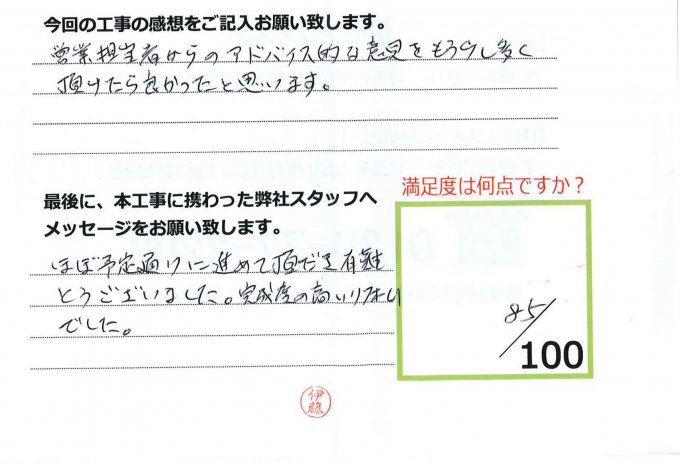 今回の工事の感想をご記入お願い致します。
営業担当者からのアドバイス的な意見をもう少し多く
頂けたら良かったと思います。
最後に、本工事に携わった弊社スタッフへ
メッセージをお願い致します。
ほぼ予定通りに進めて頂だき有難
とうございました。完成度の高いリフォーム
でした。
満足度は何点ですか？
85/
100
伊藤